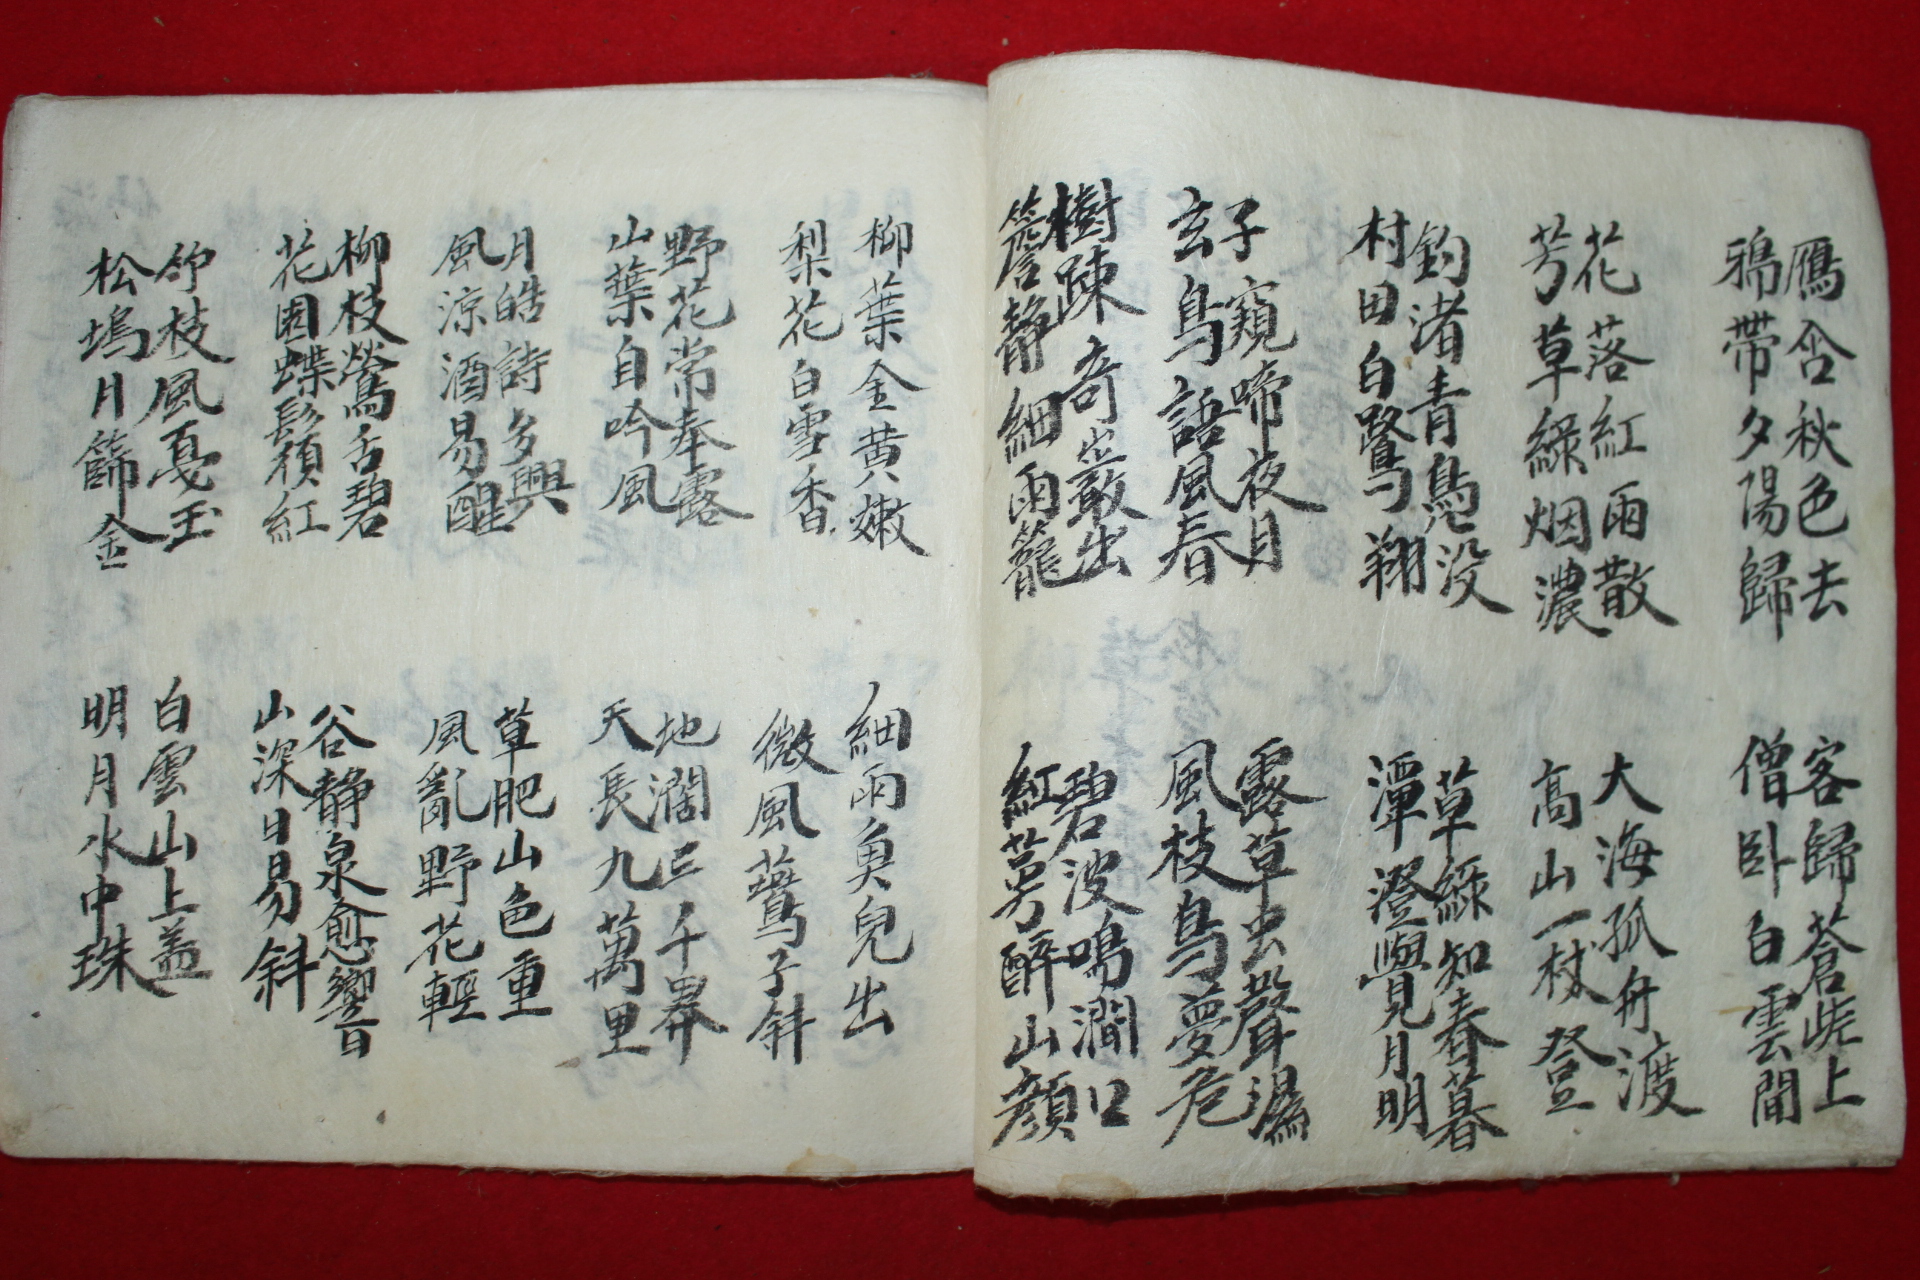 鴈含秋色去
鴉帶夕陽歸
花落紅雨散
芳草綠烟濃
釣渚青鳧没
村田白鷺翔
子窺啼夜月
玄鳥語風春
樹踈奇巖出
簷静細雨篭
客歸蒼崖上
僧卧白雲間
大海孤舟渡
高山一杖登
草綠知春暮
潭澄覺月明
露草虫聲濕
風枝鳥夢危
碧波鳴澗口
紅萼醉山顔
柳葉金黃嫩
梨花白雪香
野花常奉露
山葉自吟風
月皓詩多興
風凉酒易醒
柳枝鶯舌碧
花園蝶鬚紅
竹枝風戛玉
松塢月篩金
細雨魚兒出
微風鷰子斜
地濶三千界
天長九萬里
草肥山色重
風亂野花輕
谷静泉愈響
山深日易斜
白雲山上盖
明月水中珠